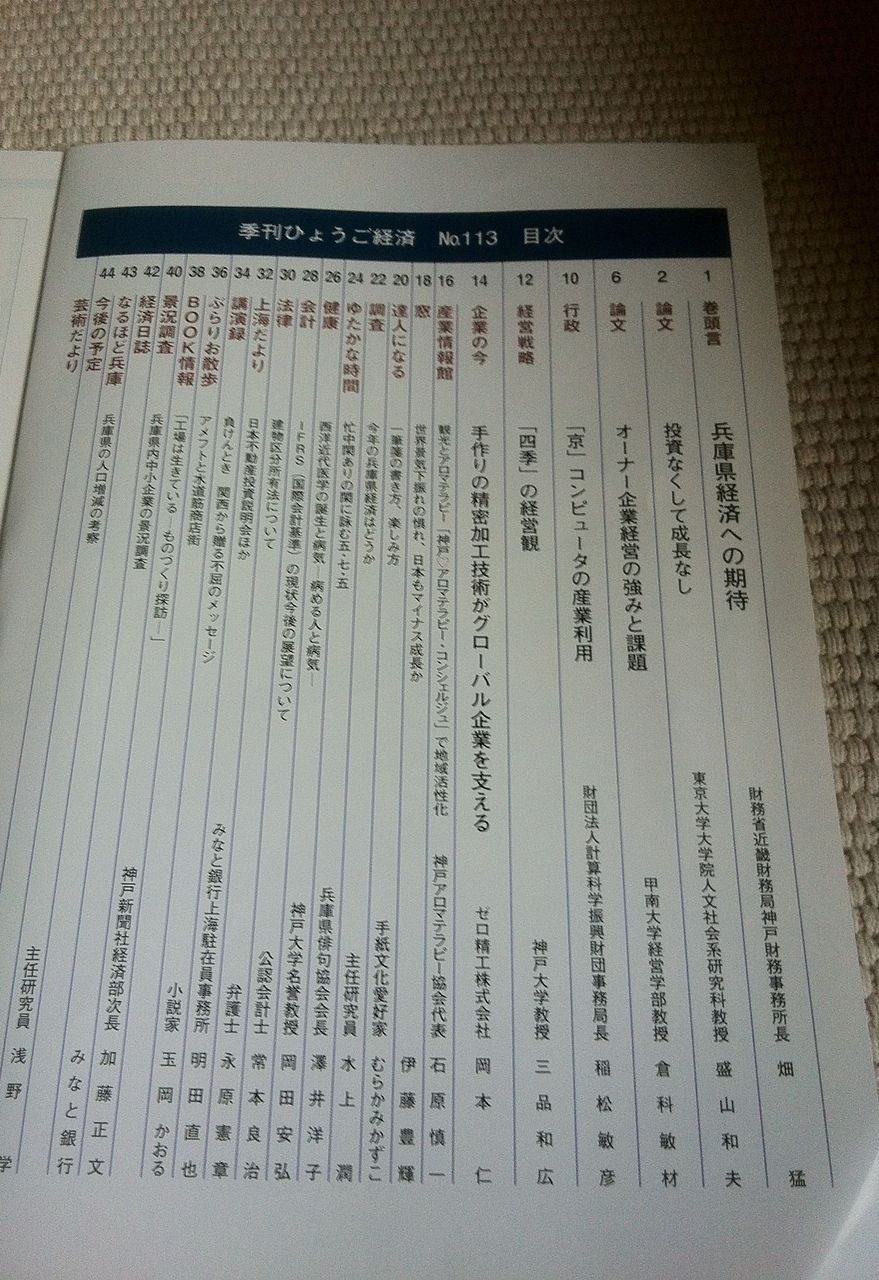 季刊ひょうご経済 No.113 目次
1 巻頭言 兵庫県経済への期待 財務省近畿財務局神戸財務事務所長 畑 猛
2 論文 投資なくして成長なし 東京大学大学院人文社会系研究科教授 盛山和夫
6 論文 オーナー企業経営の強みと課題 甲南大学経営学部教授 倉科敏材
10 行政 「京」コンピュータの産業利用 財団法人計算科学振興財団事務局長 稲松敏彦
12 経営戦略 「四季」の経営観 神戸大学教授 三品和広
14 企業の今 手作りの精密加工技術がグローバル企業を支える ゼロ精工株式会社 岡本 仁
16 産業情報館 観光とアロマテラピー「神戸♡アロマテラピー・コンシェルジュ」で地域活性化 神戸アロマテラピー協会代表 石原慎一
18 窓 世界景気下振れの惧れ、日本もマイナス成長か 伊藤豊輝
20 達人になる 一筆箋の書き方、楽しみ方 手紙文化愛好家 むらかみかずこ
22 調査 今年の兵庫県経済はどうか 主任研究員 水上 潤
24 ゆたかな時間 忙中閑ありの閑に詠む五・七・五 兵庫県俳句協会会長 澤井洋子
26 健康 西洋近代医学の誕生と病気―病める人と病気 神戸大学名誉教授 岡田安弘
28 会計 IFRS(国際会計基準)の現状今後の展望について 公認会計士 常本良治
30 法律 建物区分所有法について 弁護士 永原憲章
32 上海だより 日本不動産投資説明会ほか みなと銀行上海駐在員事務所 明田直也
34 講演録 負けんとき 関西から贈る不屈のメッセージ 小説家 玉岡かおる
36 ぶらりお散歩 アメフトと水道筋商店街 神戸新聞社経済部次長 加藤正文
38 BOOK情報 「工場は生きている―ものづくり探訪―」 みなと銀行
40 景況調査 兵庫県内中小企業の景況調査
42 経済日誌
43 なるほど兵庫 兵庫県の人口増減の考察 主任研究員 浅野 学
44 今後の予定
芸術だより